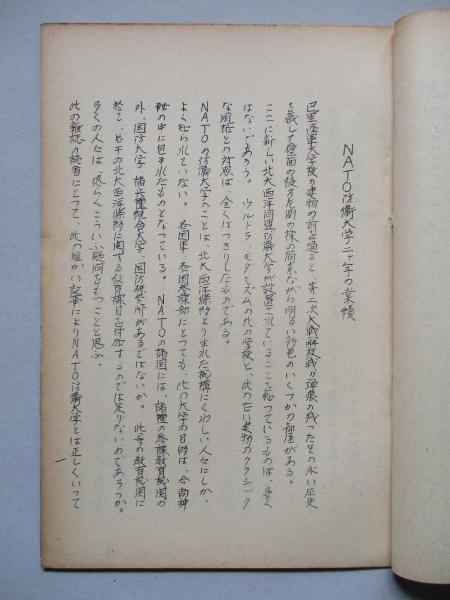 NATO防衛大学二ヶ年の業績
巴里陸軍大学校の建物の前を通ると、第二次大戦解放戦の弾痕の残ったその永い歴史
を蔵して壁面の後方
簡素ながら明るい彩色のいくつかの部屋がある。
ここに新しい北大西洋同盟防衛大学が設置されていることを知っているものは、多く
はないであろう。ウルトラ・モダニズムの此の学校と、此の古い建物のクラシック
な風格との対照は、全くはっきりしたものである。
NATOの防衛大学のことは、北大西洋條約より生れた機構にくわしい人々にしか、
よく知られていない。各国軍・各国参謀部にとっても、此の大学の目的は、今尚神
秘の中に包まれたものとなっている。NATOの諸国には、諸種の参謀教育機関の
外、国防大学、諸兵種統合大学、国防研究所があるではないか。此等の教育機関に
於て、せキの北大西洋條約に関する教育課目を付加するのでは足りないのであろうか。
多くの人々は、恐らくこういふ疑問をもつことと思ふ。
此の雑誌の読者にとって、此の短かい記事によりNATO防衛大学とは正しくいって